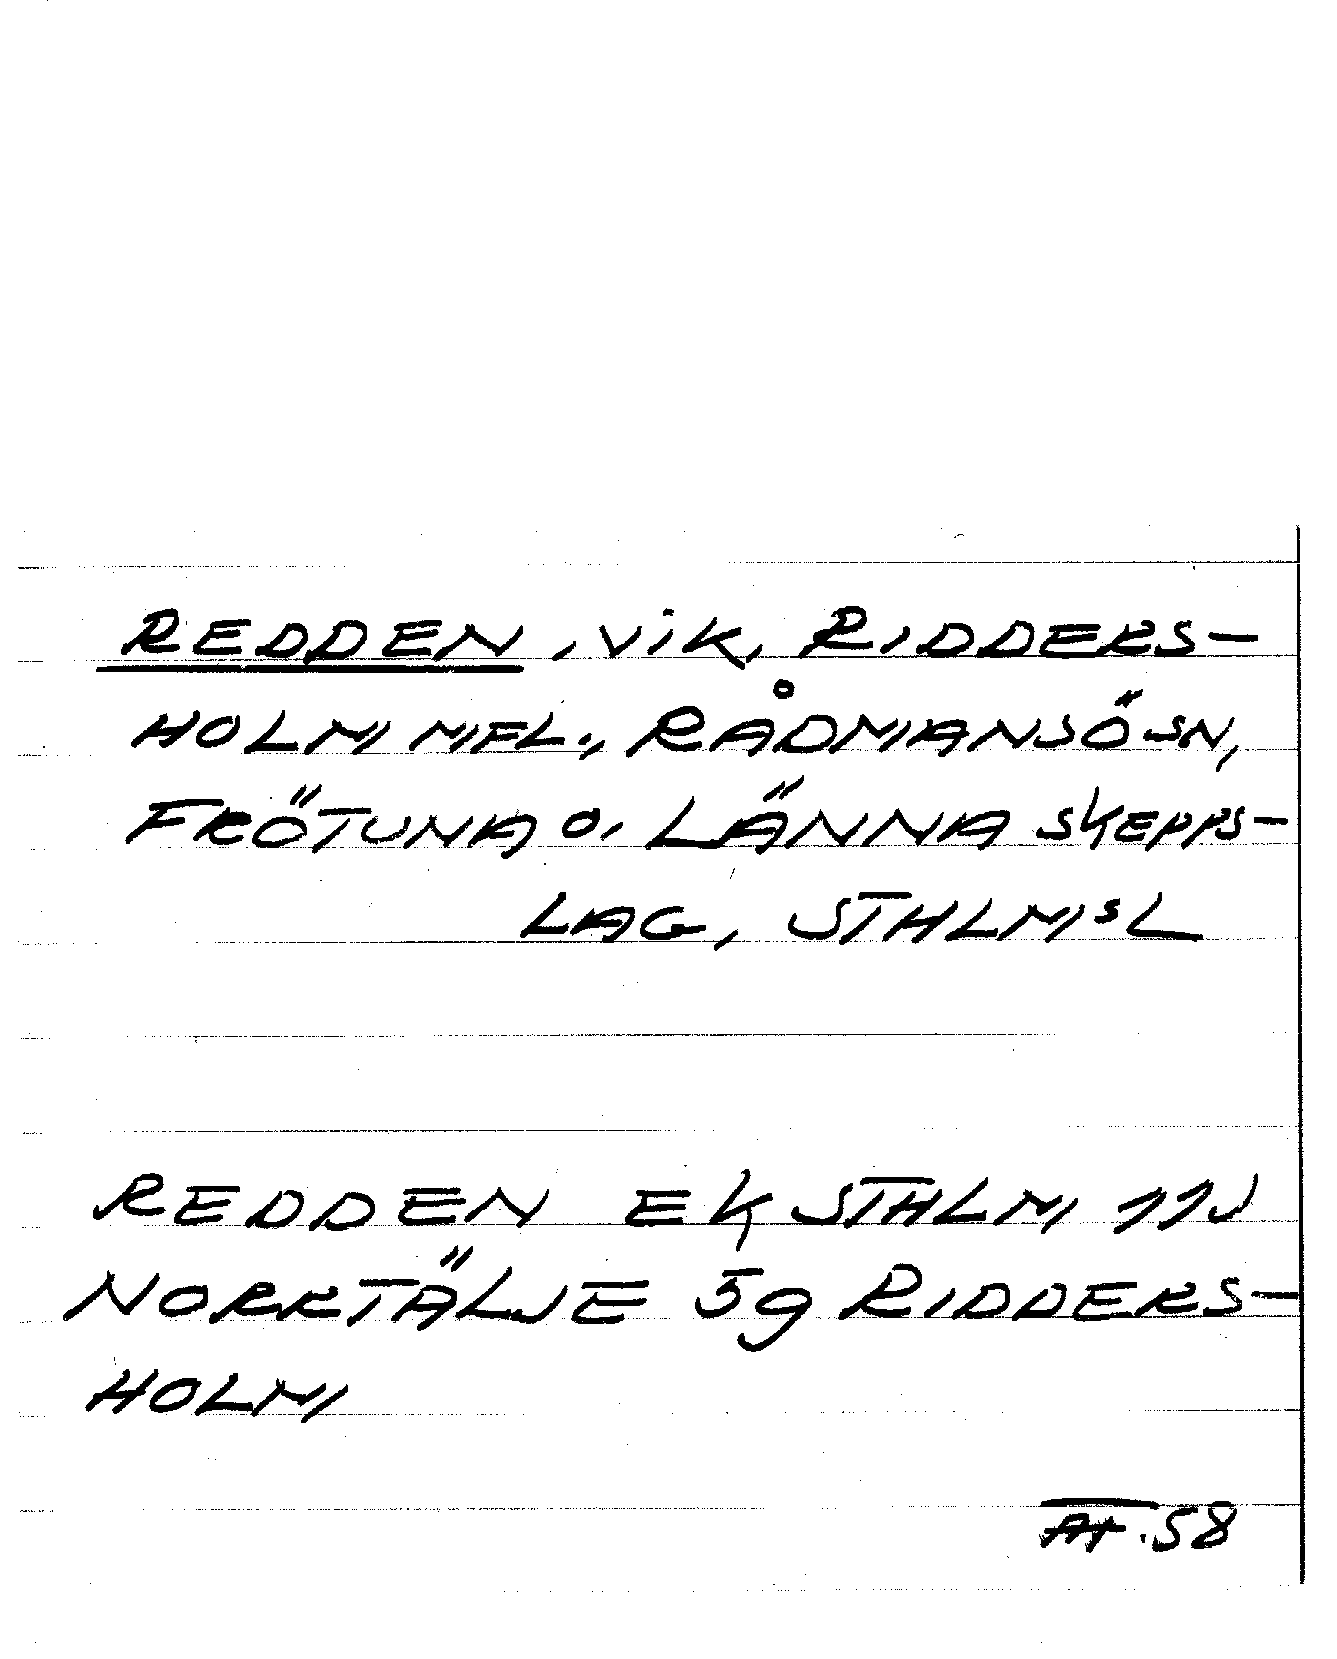 REDDEN, VIK, RIDDERS-
HOLM M FL., RÅDMANSÖ SN,
FRÖTUNA O. LÄNNA SKEPPS-
LAG, STHLMS L
REDDEN EK STHLM 11J
NORRTÄLJE 59 RIDDERS-
HOLM
58